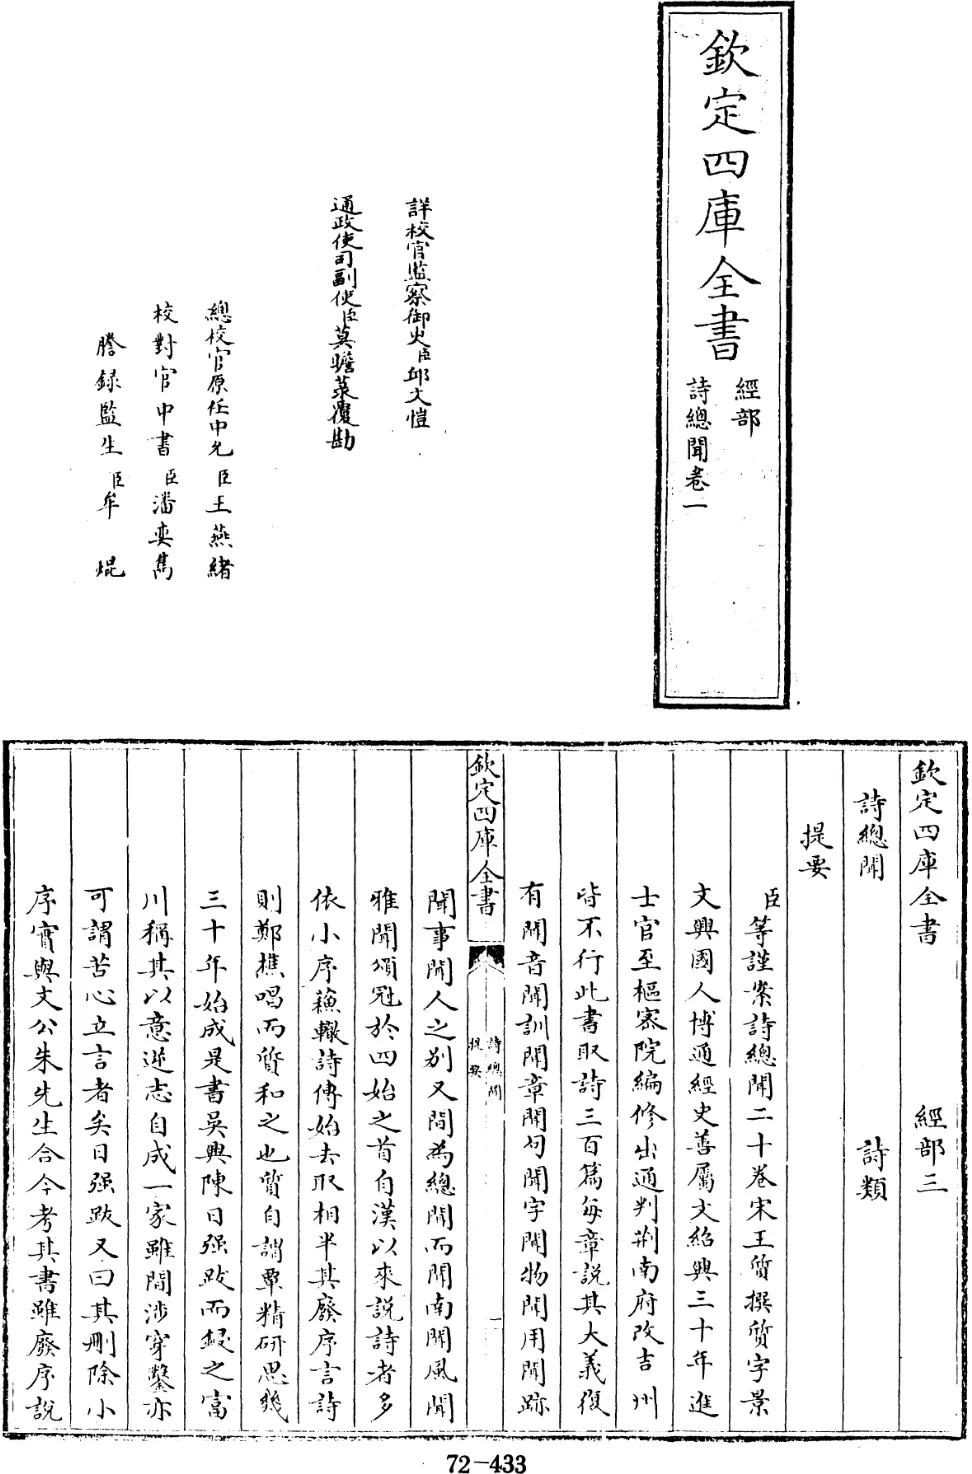 欽定四庫全書
經部
詩總聞卷一
詳校官監察御史臣邱文愷
通政使司副使臣莫瞻菉覆勘
總校官原任中允臣王燕緒
校對官中書臣潘奕雋
謄録監生臣牟焜
欽定四庫全書 經部三
詩總聞 詩類
提要
臣等謹案詩總聞二十卷宋王質撰質字景
文興國人博通經史善屬文紹興三十年進
士官至樞密院編修出通判荆南府改吉州
皆不行此書取詩三百篇每章說其大義復
有聞音聞訓聞章聞句聞字聞物聞用聞跡
欽定四庫全書
詩總聞
提要
一
聞事聞人之别又間為總聞而聞南聞風聞
雅聞頌冠於四始之首自漢以來說詩者多
依小序蘇轍詩傳始去取相半其廢序言詩
則鄭樵唱而質和之也質自謂覃精研思幾
三十年始成是書吳興陳日强跋而鋟之富
川稱其以意逆志自成一家雖間涉穿鑿亦
可謂苦心立言者矣日强跋又曰其刪除小
序實與文公朱先生合今考其書雖廢序說
72-433